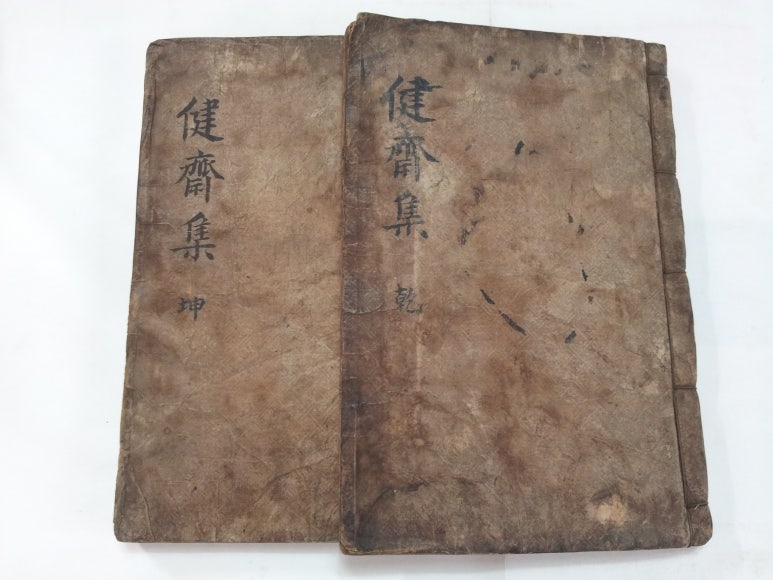 健齋集
乾
健齋集
坤